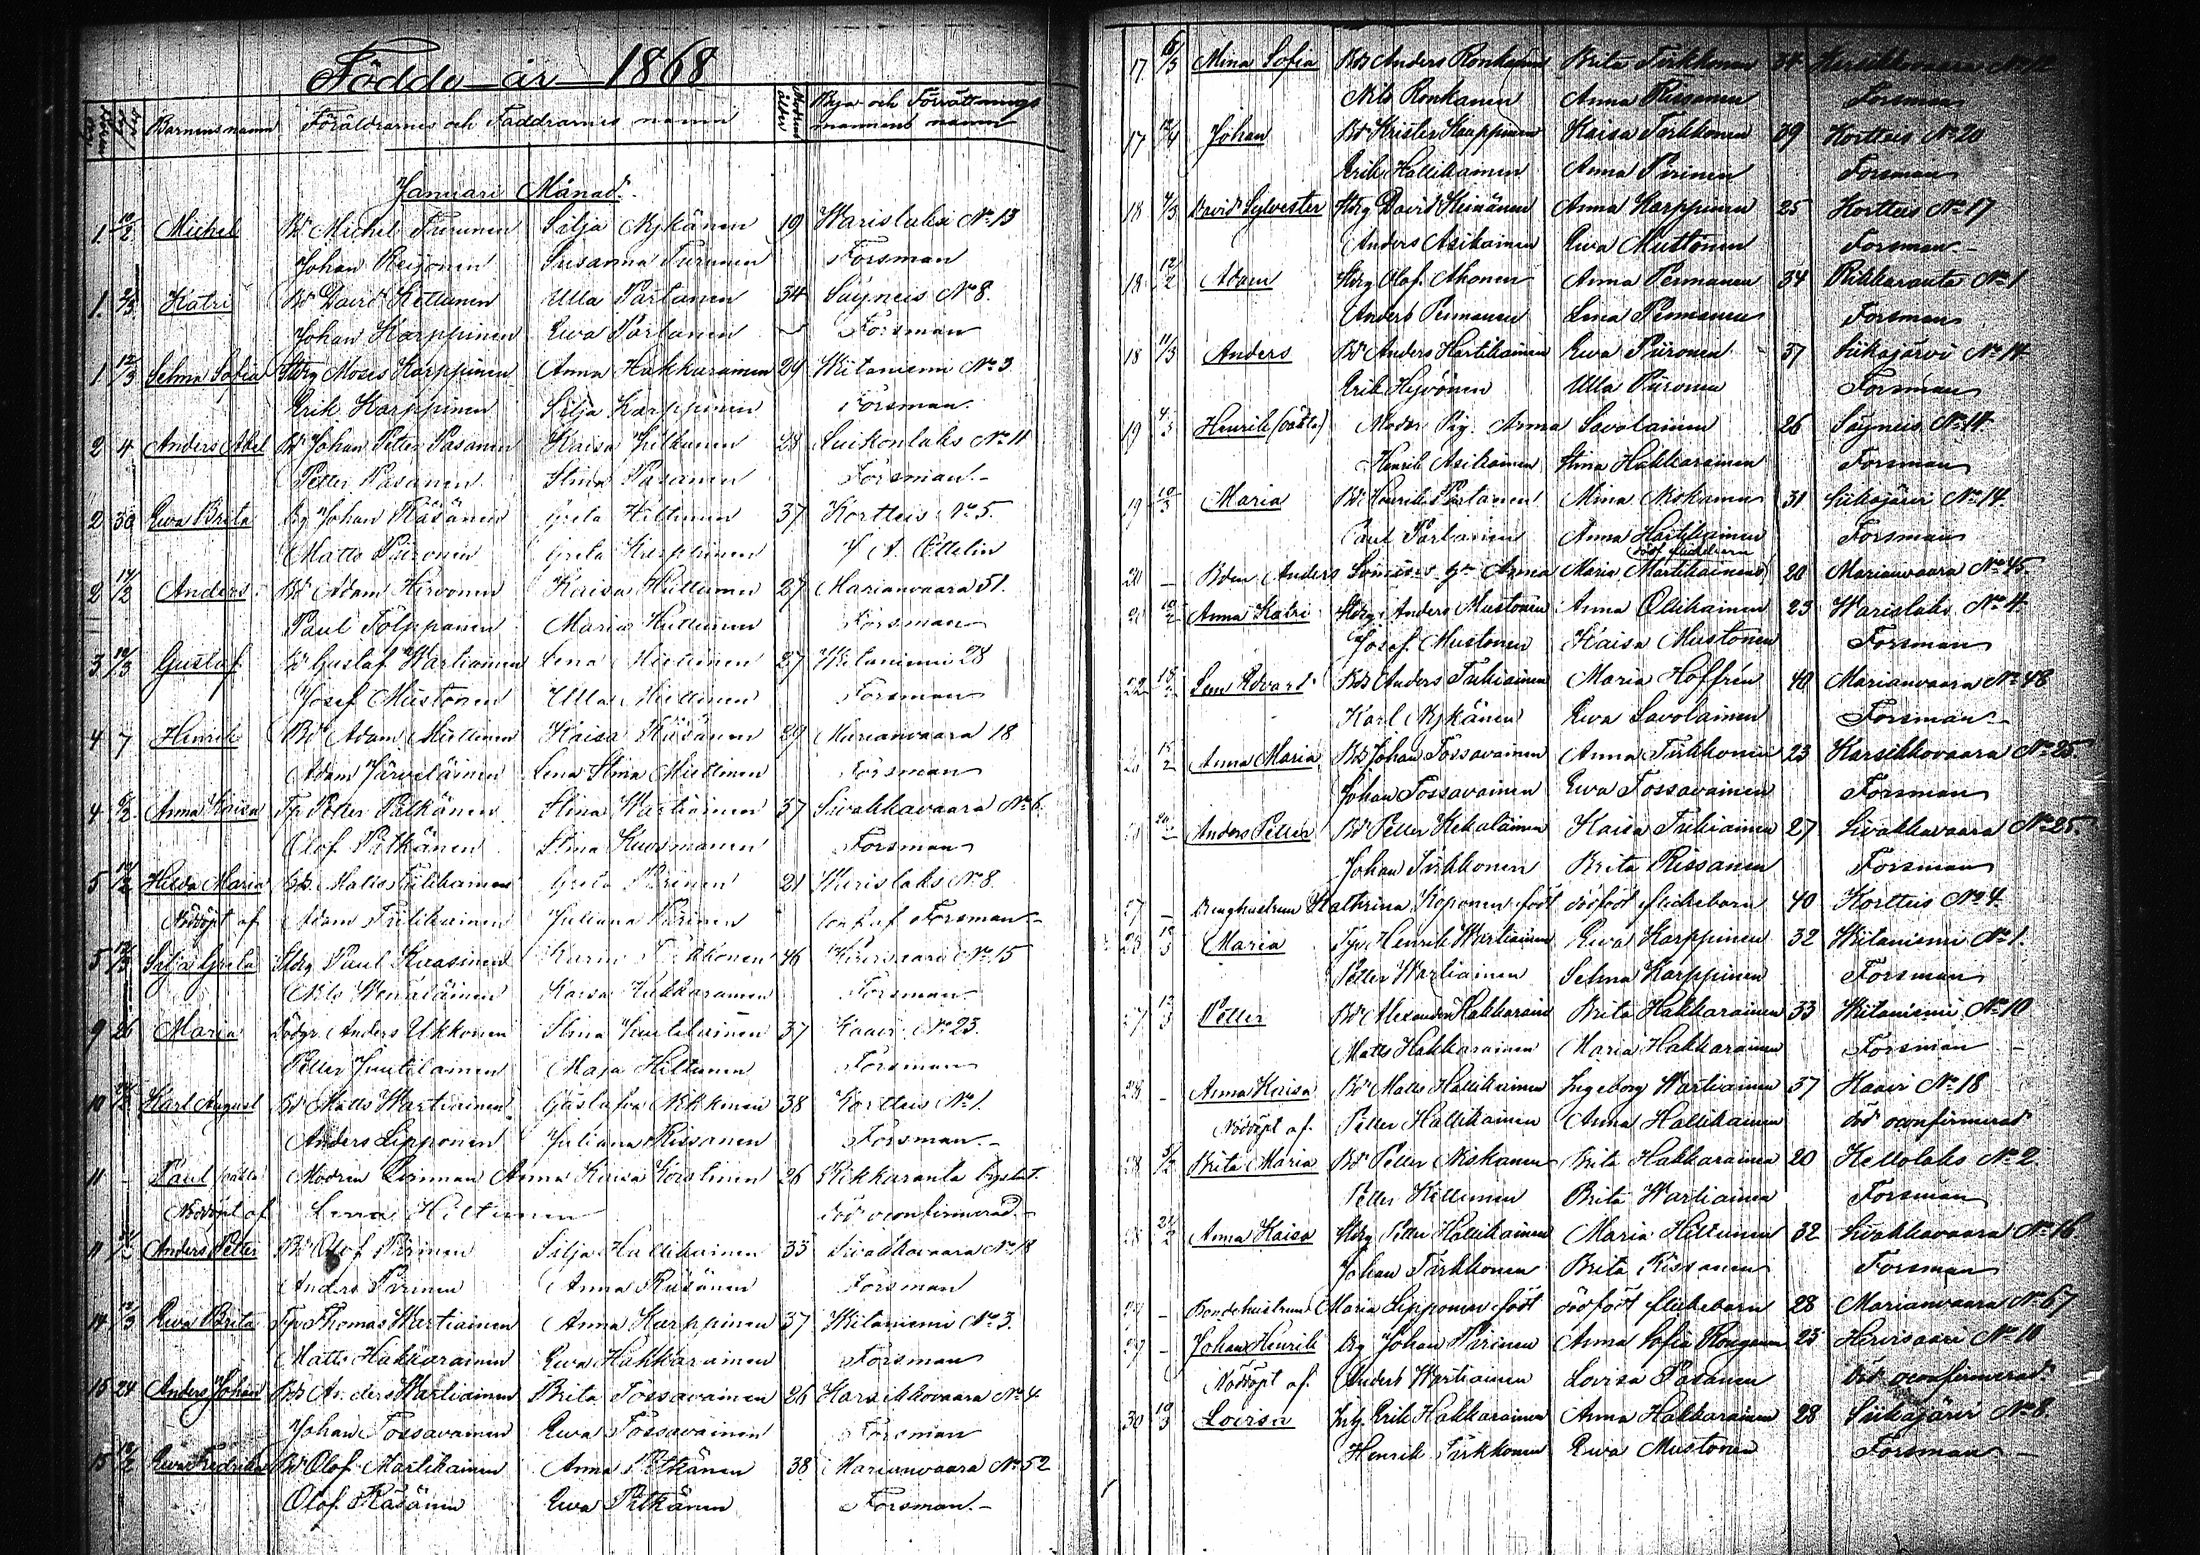 Födde år 1868
Barnens namn Föräldrarnes och Faddrarnes namn Bya och Förrättnings
mannens namn
Januari Månad.
1. 10/2 Michel Bd Michel Turunen Silja Nykänen 19 Warislaks No 13
Johan Reijonen Susanna Turunen Forsman
1. Katri Bd David Kettunen Ulla Partanen 34 Säyneis No 8.
Johan Karppinen Ewa Partanen Forsman
1 12/3 Selma Sofia Sldrg Moses Karppinen Anna Hakkarainen 29 Witaniemi No 3
Erik Karppinen Silja Karppinen Forsman.
2 4 Anders Abel Bd Johan Petter Pasanen Kaisa 28 Luikonlaks No 11
Petter Pasanen Stina Pasanen Forsman.
2 30 Ewa Brita Drg Johan Räsänen Greta Hiltunen 37 Kortteis No 5.
Matts Piironen Greta Karppinen
2 14/2 Anders Bd Adam Hirvonen Kaisa Huttunen 27 Marianvaara 51.
Paul Tolppanen Maria Huttunen Forsman
3 Gustaf Bd Gustaf Wartiainen Lena Miettinen 27 Witaniemi 28
Josef Mustonen Ulla Miettinen Forsman
4 7 Henrik Bd Adam Miettinen Kaisa Räsänen 29 Marianvaara 18
Adam Järveläinen Lena Stina Miettinen Forsman
4 Anna Kaisa Tp Petter Pitkänen Stina Wartiainen 37 Siwakkavaara No 6.
Olof Pitkänen Stina Kuosmanen Forsman
5 Hilda Maria Bds Matts Greta Pirinen 21 Warislaks No 8.
Nöddöpt af Adam Juliana Pirinen conf. af Forsman
5 Silja Greta Sldrg Paul Kuosmanen Karin 46 No 15
Nils Wenäläinen Kaisa Hakkarainen Forsman
9 26 Maria Anders Ukkonen Stina Juutilainen 37 Kaavi No 23.
Petter Juutilainen Maja Hiltunen Forsman
10 Karl August Bd Matts Wartiainen Gustafva Mikkonen 38 Kortteis No 1.
Anders Lipponen Juliana Rissanen Forsman.
11 Paul (oäkta) Modren Anna Kaisa 26 Rikkaranta
Nöddöpt af Lena Hiltunen död oconfirmerad.
11 Anders Petter Bd Olof Pirinen Silja Hallikainen 33 Sivakkavaara No 18
Anders Pirinen Anna Räsänen Forsman
14 12/3 Ewa Brita Tp Thomas Wartiainen Anna Karppinen 37 Witaniemi No 3.
Matts Hakkarainen Ewa Hakkarainen Forsman
15 24 Anders Johan Bds Anders Wartiainen Brita Tossavainen 26 Karsikkovaara No 4
Johan Tossavainen Ewa Tossavainen Forsman
15 Ewa Fredrika Bd Olof Martikainen Anna Pitkänen 38 Marianvaara No 52
Olof Räsänen Ewa Pitkänen Forsman.
17 Mina Sofia Bds Anders Ronkanen Brita Tirkkonen 34
Nils Ronkanen Anna Rissanen Forsman
17 Johan Bd Krister Karppinen Kaisa Tirkkonen 39 Kortteis No 20
Erik Hallikainen Anna Pirinen Forsman
18 David Sylvester Sldrg David Heinänen Anna Karppinen 25 Kortteis No 17
Anders Asikainen Ewa Mustonen Forsman
18 12/2 Adam Sldrg Olof Ahonen Anna Pennanen 34 Rikkaranta No 1
Anders Pennanen Lena Pennanen Forsman
18 11/3 Anders Bd Anders Hartikainen Ewa Piironen 37 Siikajärvi No 14
Erik Hyvönen Ulla Piironen Forsman
19 4/3 Henrik (oäkta) Moder Pig. Anna Savolainen 26 Säyneis No 14
Henrik Asikainen Stina Hakkarainen Forsman
19 10/3 Maria Bd Henrik Partanen Mina Niskanen 31 Siikajärvi No 14.
Paul Partanen Anna Hartikainen Forsman
20 — Bden Anders Anna Maria Martikainens 20 Marianvaara No 45
21 Anna Katri Sldrg Anders Mustonen Anna Ollikainen 23 Warislaks No 4.
Josef Mustonen Kaisa Mustonen Forsman
22 Edvard Bds Anders Tukiainen Maria Hoffrén 40 Marianvaara No 48
Karl Nykänen Ewa Savolainen Forsman
15/2 Anna Maria Bds Johan Tossavainen Anna Tirkkonen 23 Karsikkovaara No 25.
Johan Tossavainen Ewa Tossavainen Forsman
Anders Petter Bd Petter Kekäläinen Kaisa Tukiainen 27 Sivakkavaara No 25.
Johan Tirkkonen Brita Rissanen Forsman
— Drenghustrun Kathrina Koponen född dödfödt flickebarn 40 Kortteis No 4
Maria Tp Henrik Wartiainen Ewa Karppinen 32 Witaniemi No 1.
Petter Wartiainen Selma Karppinen Forsman
27 13/3 Petter Bd Alexander Hakkarainen Brita Hakkarainen 33 Witaniemi No 10
Matts Hakkarainen Maria Hakkarainen Forsman
28 — Anna Kaisa Bd Matts Hallikainen Ingeborg Wartiainen 37 Kaavi No 18
Nöddöpt af Petter Hallikainen Anna Hallikainen död oconfirmerad
28 Brita Maria Bd Petter Niskanen Brita Hakkarainen 20 Kettolaks No 2.
Petter Brita Wartiainen Forsman
28 Anna Kaisa Sldrg Petter Hallikainen Maria Hiltunen 32 Sivakkavaara No 16
Johan Tirkkonen Brita Rissanen Forsman
29 — Bondehustrun Maria Lipponen född dödfödt flickebarn 28 Marianvaara No 67
29 — Johan Henrik Drg Johan Pirinen Anna Sofia 23 No 10
Nöddöpt af Anders Wartiainen Lovisa Pasanen död oconfirmerad.
30 10/3 Lovisa Erik Hakkarainen Anna Hakkarainen 28 Siikajärvi No 8.
Henrik Tirkkonen Ewa Mustonen Forsman